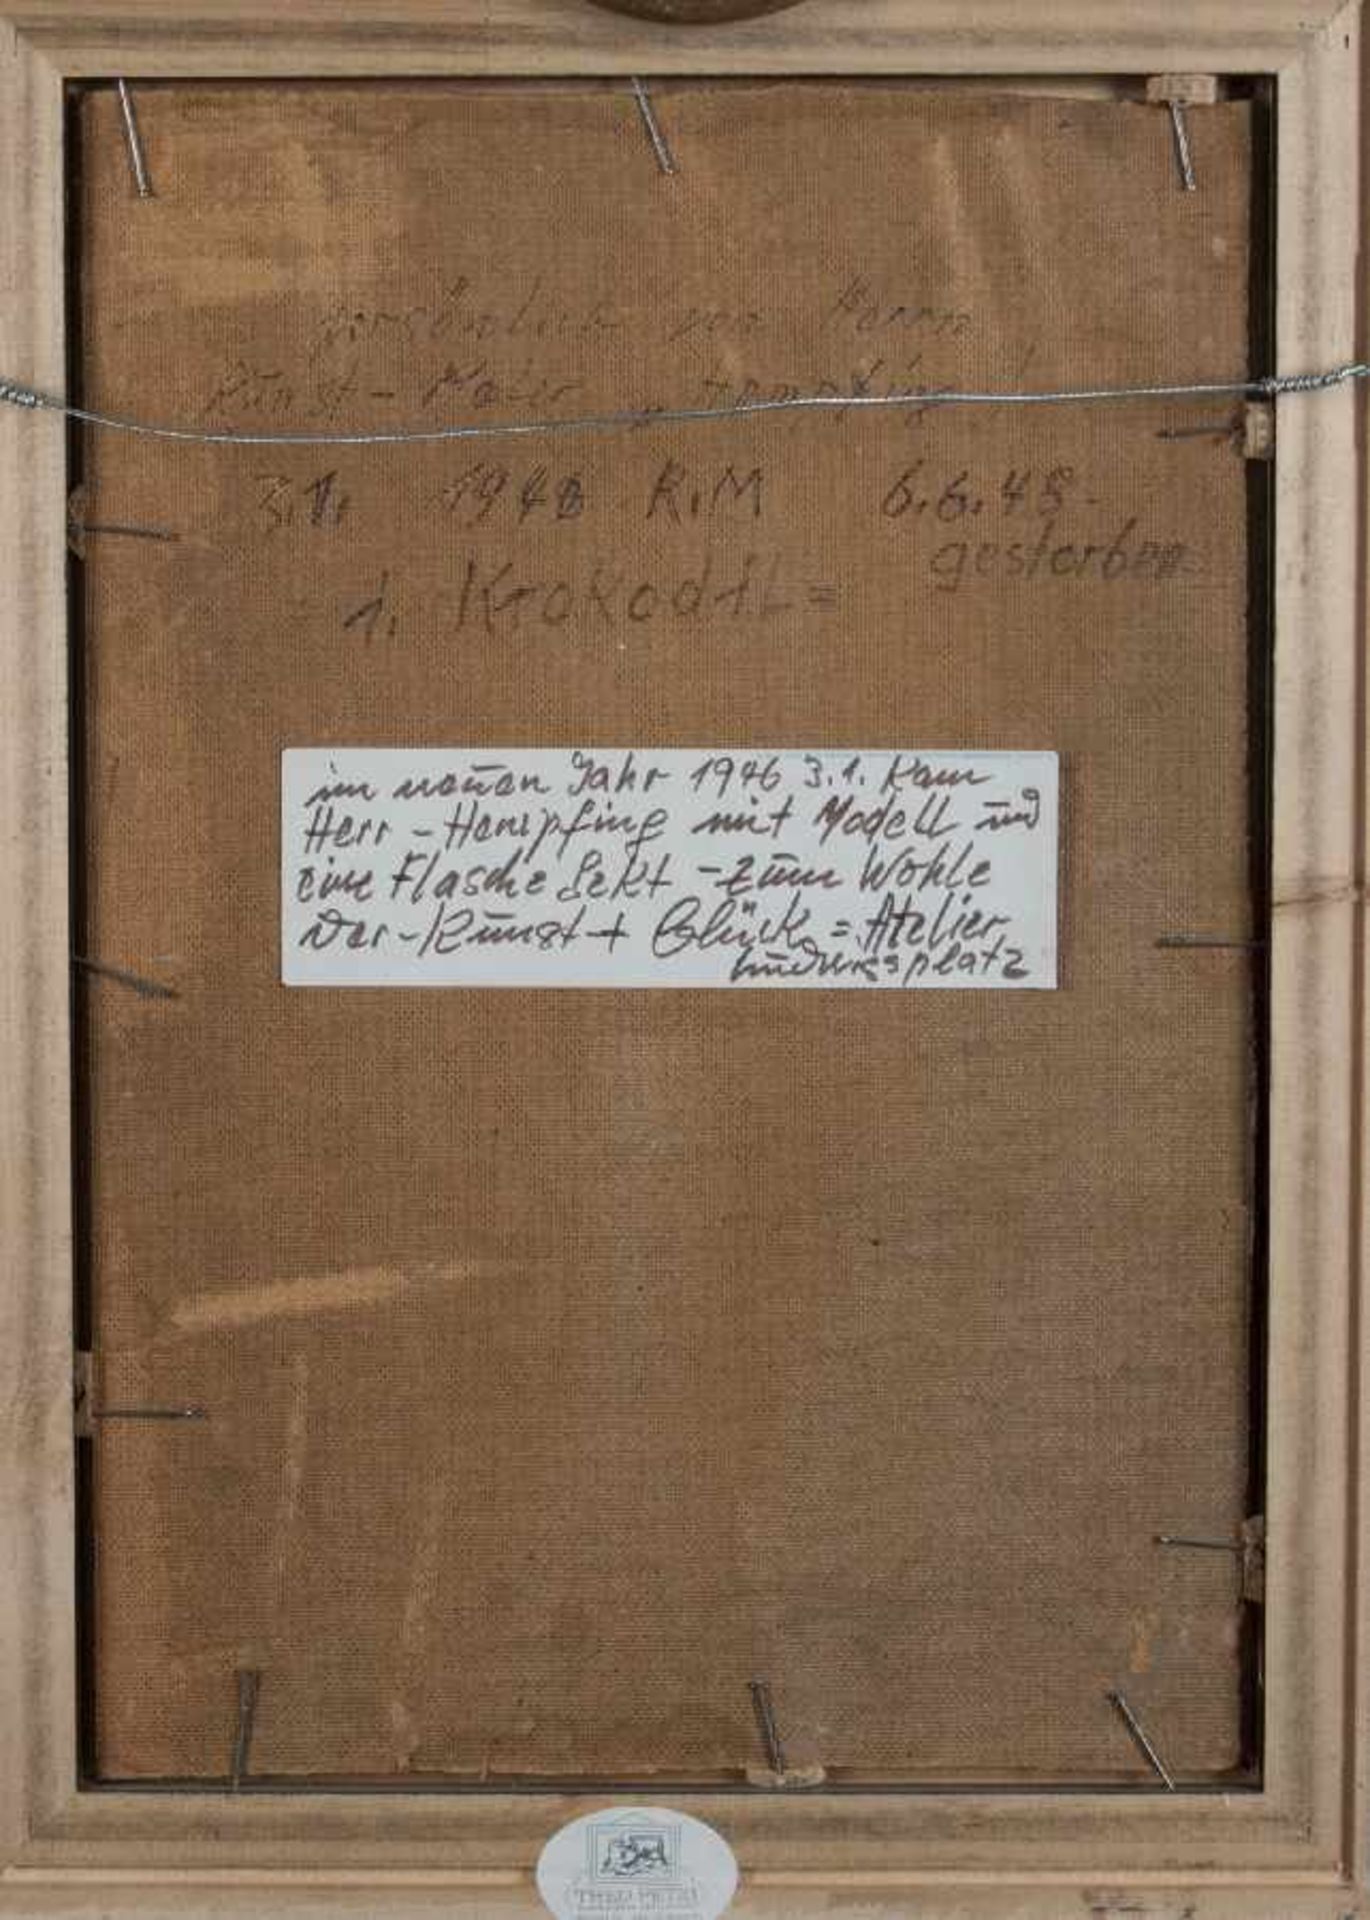 persönlich von Herrn
Kunst-Maler Hempfing
3.1. 1948 R.M 6.6.48-
gestorben
1. Krokodil=
im neuen Jahr 1946 3.1. Kam
Herr-Hempfing mit Modell und
eine Flasche Sekt - zum Wohle
der-Kunst + Glück = Atelier
Ludwigsplatz